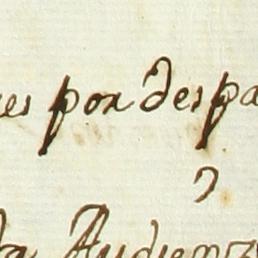 es por despa
da Audienz